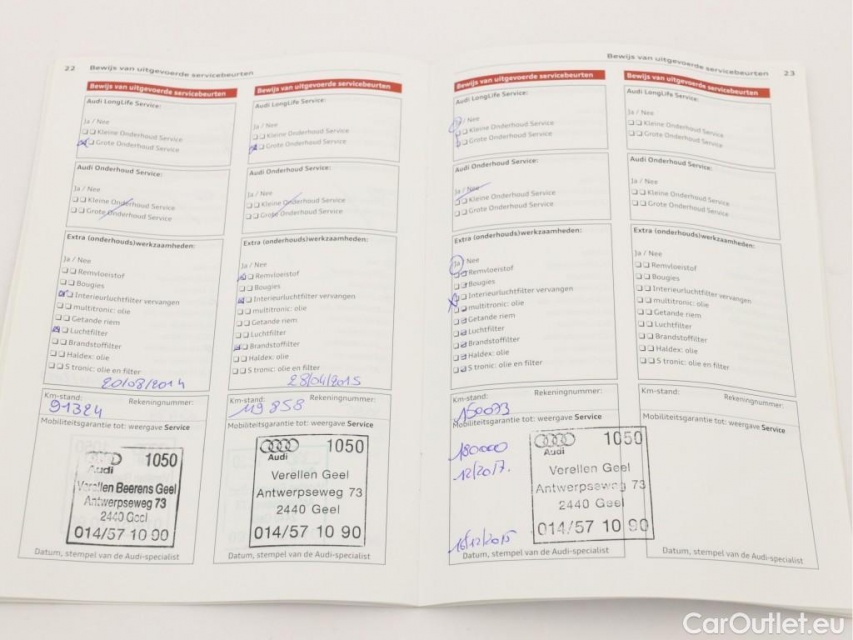 22 Bewijs van uitgevoerde servicebeurten
Bewijs van uitgevoerde servicebeurten
Audi LongLife Service:
Ja / Nee
Kleine Onderhoud Service
Grote Onderhoud Service
Audi Onderhoud Service:
Ja / Nee
Kleine Onderhoud Service
Grote Onderhoud Service
Extra (onderhouds)werkzaamheden:
Ja / Nee
Remvloeistof
Bougies
Interieurluchtfilter vervangen
multitronic: olie
Getande riem
Luchtfilter
Brandstoffilter
Haldex: olie
S tronic: olie en filter
20/08/2014
Km-stand: Rekeningnummer:
91324
Mobiliteitsgarantie tot: weergave Service
1050
Audi
Verellen Beerens Geel
Antwerpseweg 73
2440 Geel
014/57 10 90
Datum, stempel van de Audi-specialist
Bewijs van uitgevoerde servicebeurten
Audi LongLife Service:
Ja / Nee
Kleine Onderhoud Service
Grote Onderhoud Service
Audi Onderhoud Service:
Ja / Nee
Kleine Onderhoud Service
Grote Onderhoud Service
Extra (onderhouds)werkzaamheden:
Ja / Nee
Remvloeistof
Bougies
Interieurluchtfilter vervangen
multitronic: olie
Getande riem
Luchtfilter
Brandstoffilter
Haldex: olie
S tronic: olie en filter
28/04/2015
Km-stand: Rekeningnummer:
119 858
Mobiliteitsgarantie tot: weergave Service
1050
Audi
Verellen Geel
Antwerpseweg 73
2440 Geel
014/57 10 90
Datum, stempel van de Audi-specialist
Bewijs van uitgevoerde servicebeurten 23
Bewijs van uitgevoerde servicebeurten
Audi LongLife Service:
Ja / Nee
Kleine Onderhoud Service
Grote Onderhoud Service
Audi Onderhoud Service:
Ja / Nee
Kleine Onderhoud Service
Grote Onderhoud Service
Extra (onderhouds)werkzaamheden:
Ja / Nee
Remvloeistof
Bougies
Interieurluchtfilter vervangen
multitronic: olie
Getande riem
Luchtfilter
Brandstoffilter
Haldex: olie
S tronic: olie en filter
Km-stand: Rekeningnummer:
150073
Mobiliteitsgarantie tot: weergave Service
180000
12/2017.
1050
Audi
Verellen Geel
Antwerpseweg 73
2440 Geel
014/57 10 90
16/12/2015
Datum, stempel van de Audi-specialist
Bewijs van uitgevoerde servicebeurten
Audi LongLife Service:
Ja / Nee
Kleine Onderhoud Service
Grote Onderhoud Service
Audi Onderhoud Service:
Ja / Nee
Kleine Onderhoud Service
Grote Onderhoud Service
Extra (onderhouds)werkzaamheden:
Ja / Nee
Remvloeistof
Bougies
Interieurluchtfilter vervangen
multitronic: olie
Getande riem
Luchtfilter
Brandstoffilter
Haldex: olie
S tronic: olie en filter
Km-stand: Rekeningnummer:
Mobiliteitsgarantie tot: weergave Service
Datum, stempel van de Audi-specialist
CarOutlet.eu